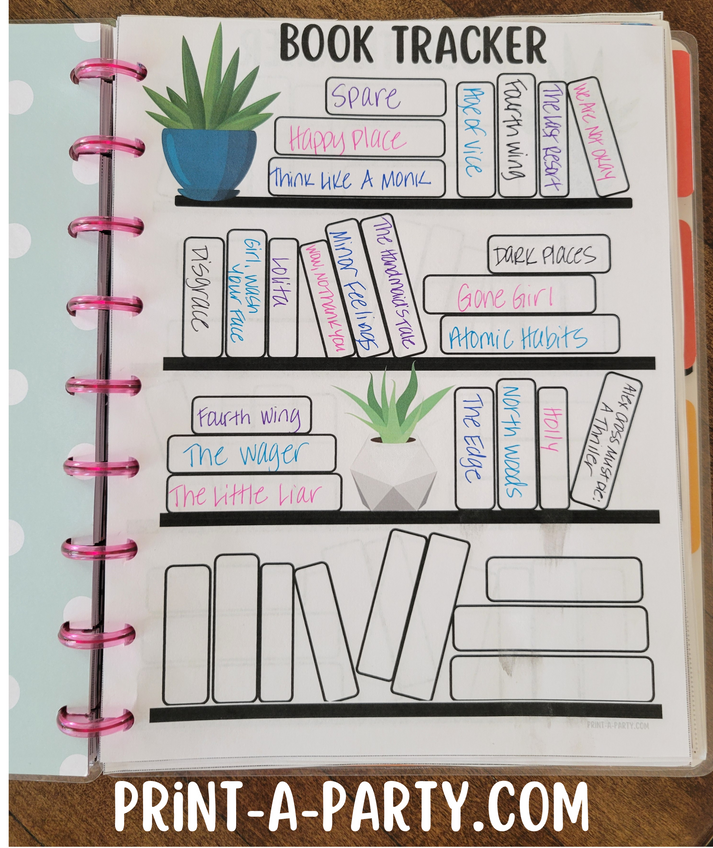 BOOK TRACKER
Spare
Happy Place
Think Like A Monk
Age of Vice
Fourth Wing
The Last Resort
We Are Not Okay
Disgrace
Girl, Wash
Your Face
Lolita
Wow, No Thank You
Minor Feelings
The Handmaid's Tale
DARK PLACES
Gone Girl
Atomic Habits
Fourth Wing
The Wager
The Little Liar
The Edge
North Woods
Holly
Alex Cross Must Die:
A Thriller
PRINT-A-PARTY.COM
PRiNT-A-PARTY.COM